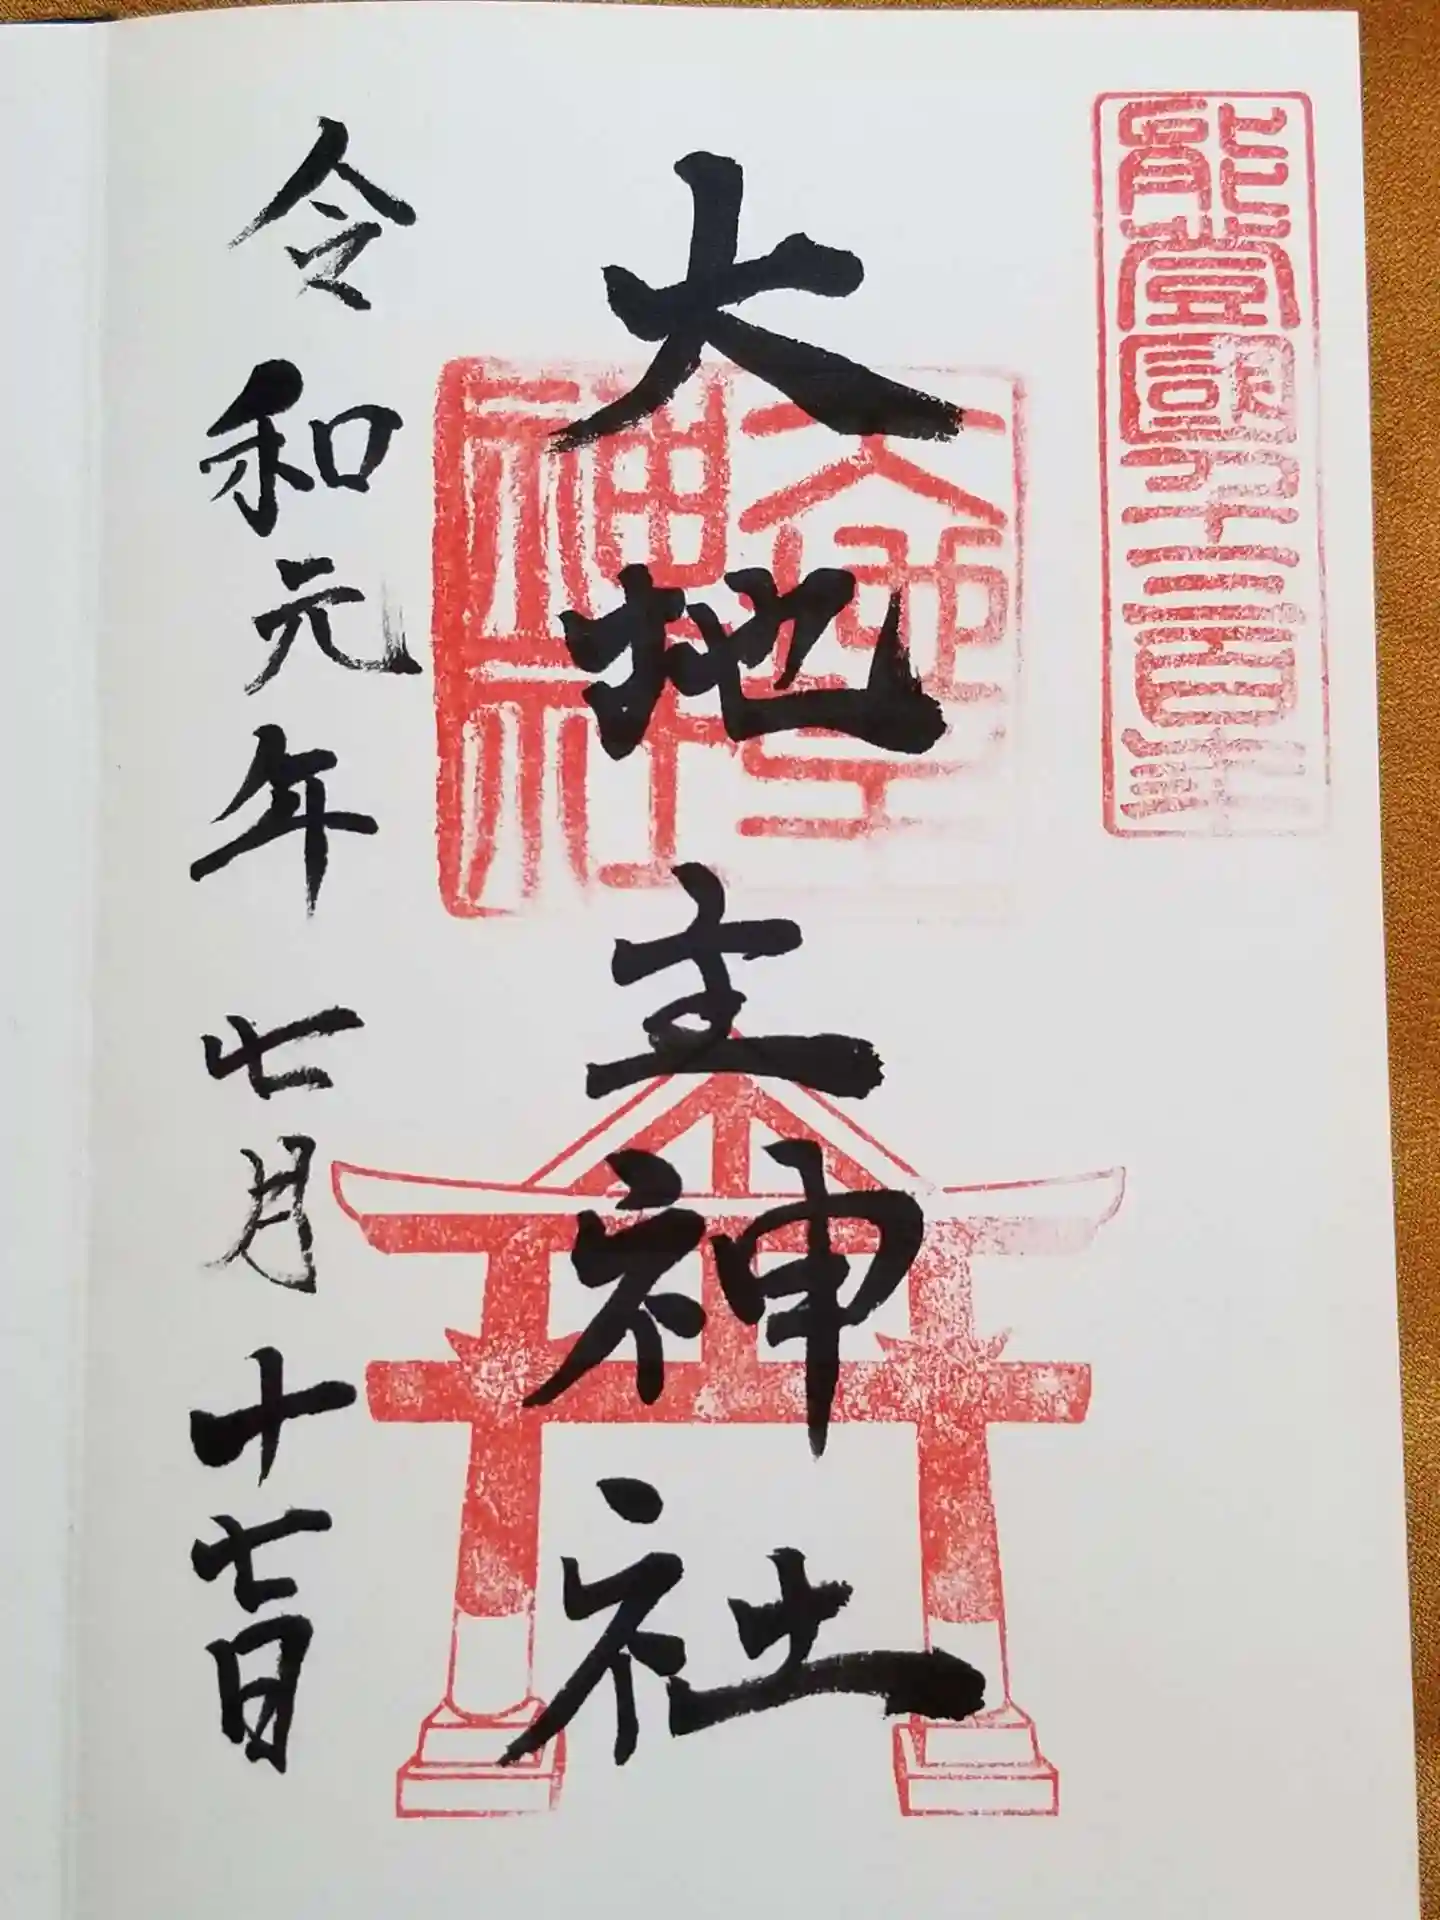 能登國千三百年
大地主神社
大地主
神社
令和元年七月十七日